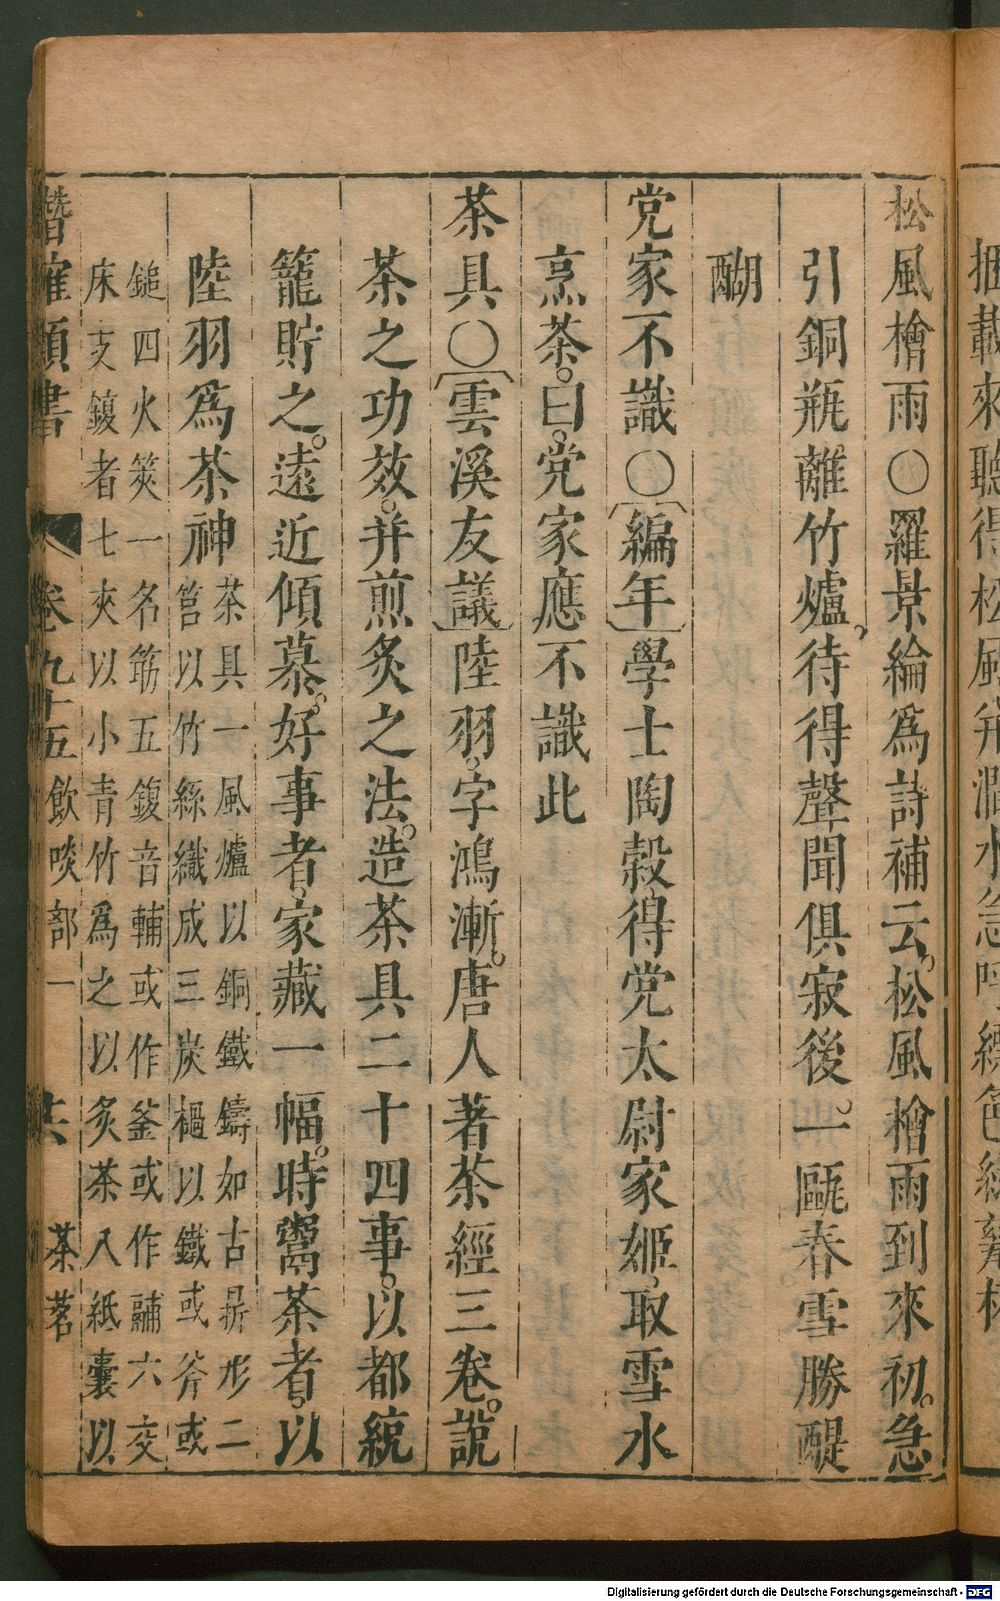 松風檜雨〇羅景綸爲詩補云松風檜雨到來初急
引銅瓶離竹爐待得聲聞俱寂後一甌春雪勝醍
醐
党家不識〇〔編年〕學士陶穀得党太尉家姬取雪水
烹茶曰党家應不識此
茶具〇〔雲溪友議〕陸羽字鴻漸唐人著茶經三卷說
茶之功效并煎炙之法造茶具二十四事以都統
籠貯之遠近傾慕好事者家藏一幅時鬻茶者以
陸羽爲茶神
茶具一風爐以銅鐵鑄如古鼎形二
筥以竹絲織成三炭檛以鐵或斧或
鎚四火筴一名筯五鍑音輔或作釜或作䩉六交
床支鍑者七夾以小青竹爲之以炙茶八紙囊以
潛確類書 卷九十五 飲啖部一 茶茗
Digitalisierung gefördert durch die Deutsche Forschungsgemeinschaft - DFG